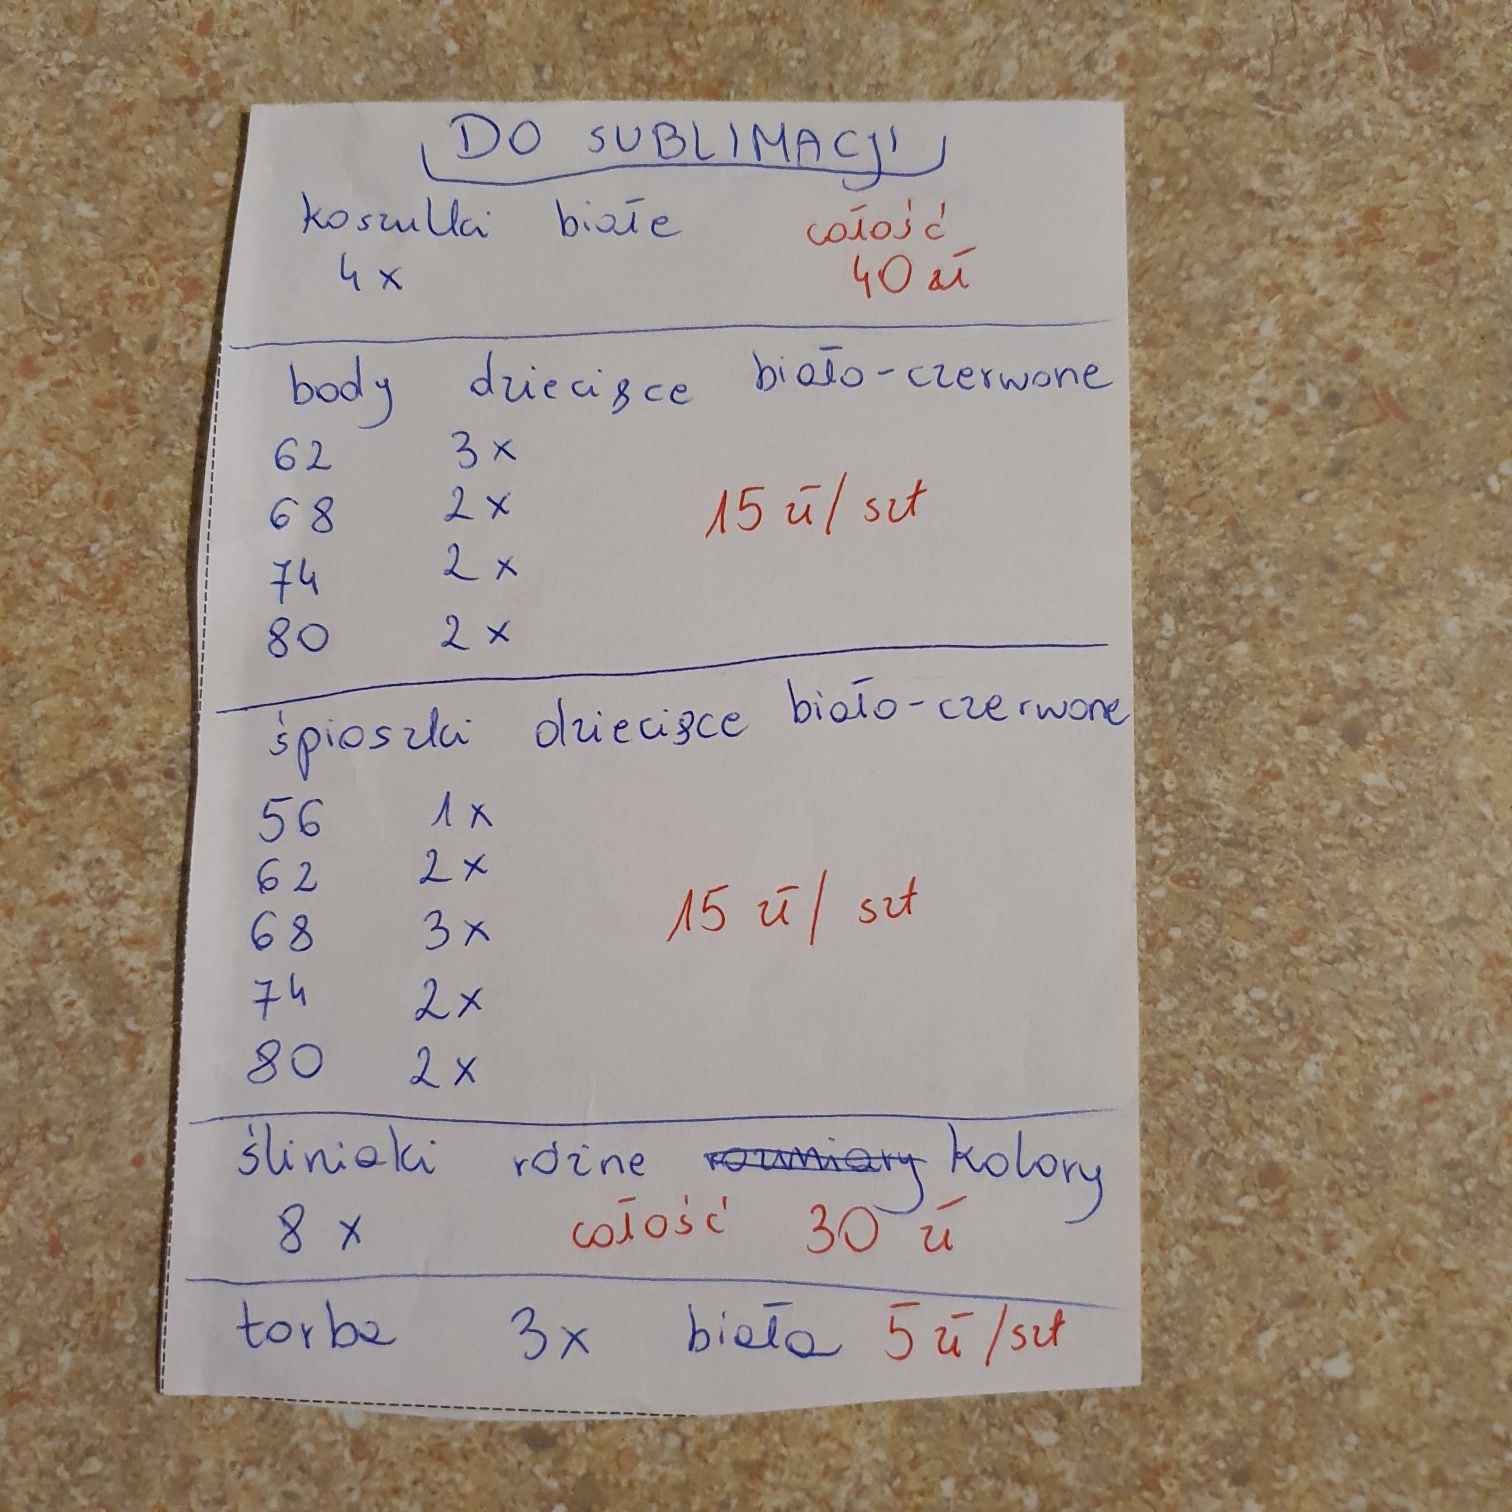 DO SUBLIMACJI
koszulki białe całość
4x 40 zł
body dziecięce biało-czerwone
62 3x
68 2x 15 zł/szt
74 2x
80 2x
śpioszki dziecięce biało-czerwone
56 1x
62 2x
68 3x 15 zł/szt
74 2x
80 2x
śliniaki różne rozmiary kolory
8x całość 30 zł
torba 3x biała 5 zł/szt